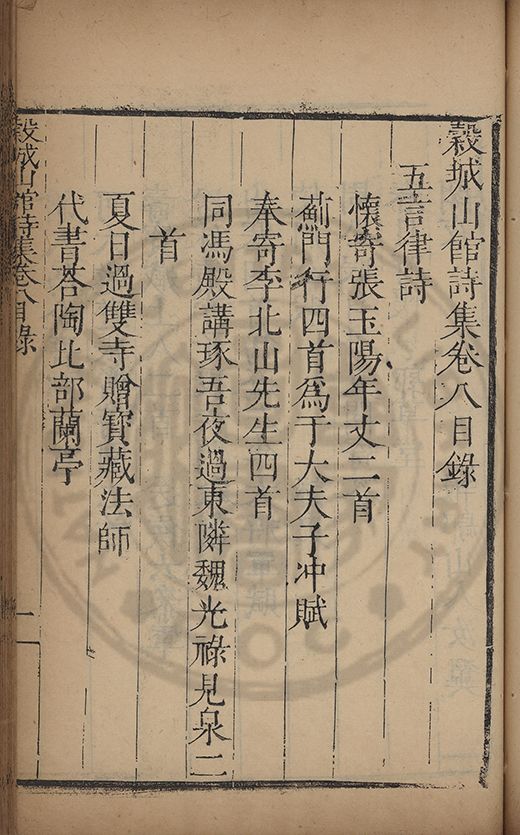 糓城山館詩集卷八目錄
五言律詩
懷寄張玉陽年丈二首
薊門行四首爲于大夫子冲賦
奉寄李北山先生四首
同馮殿講琢吾夜過東隣魏光祿見泉二
首
夏日過雙寺贈寶藏法師
代書荅陶比部蘭亭
糓城山館詩集卷八目錄
一